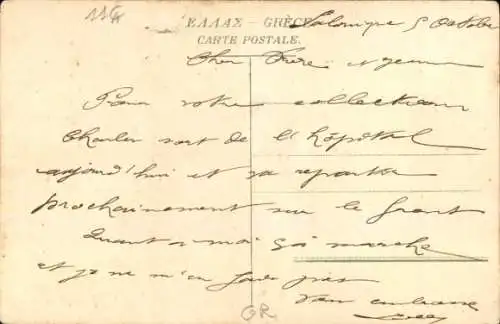 115
ΕΛΛΑΣ – GRÈCE
Salonique 5 Octobre
CARTE POSTALE.
Cher Frère et Jeanne
Pour votre collection
Charles sort de l'hôpital
aujourd'hui et va repartir
prochainement sur le front
Quant a moi ça marche
et je ne m'en fais pas
Vous embrasse